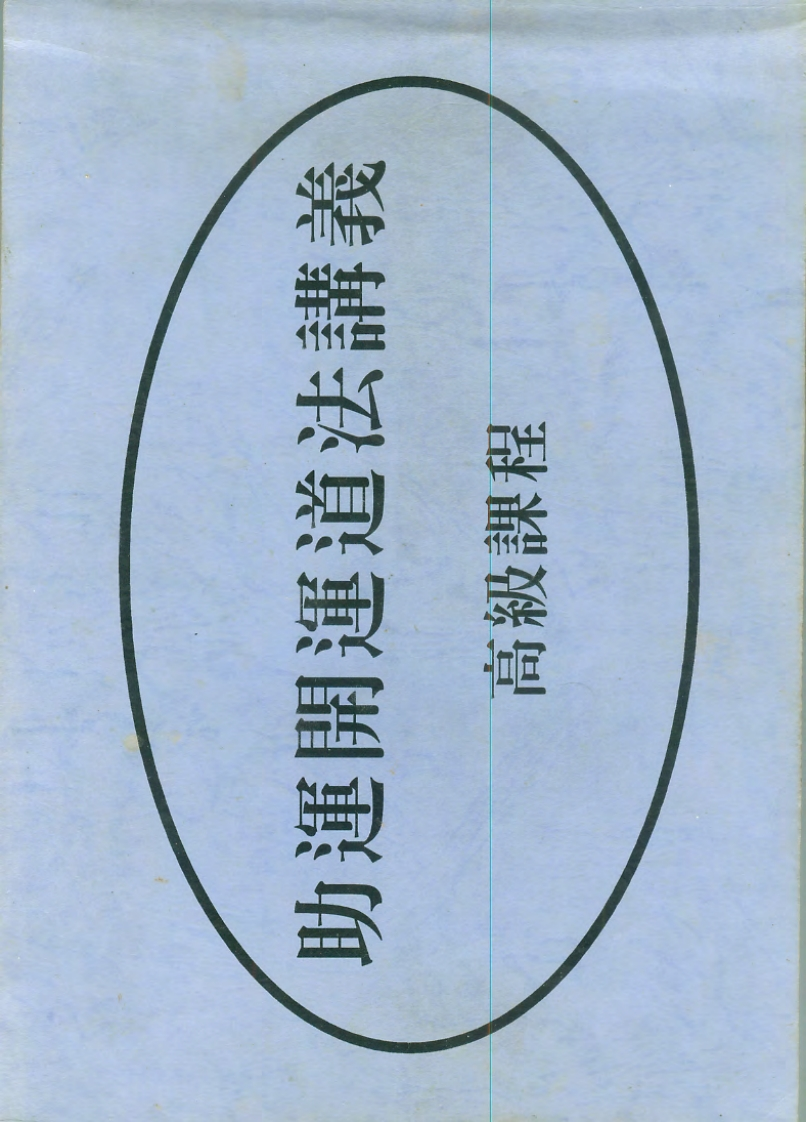 助運開運道法講義
高級課程